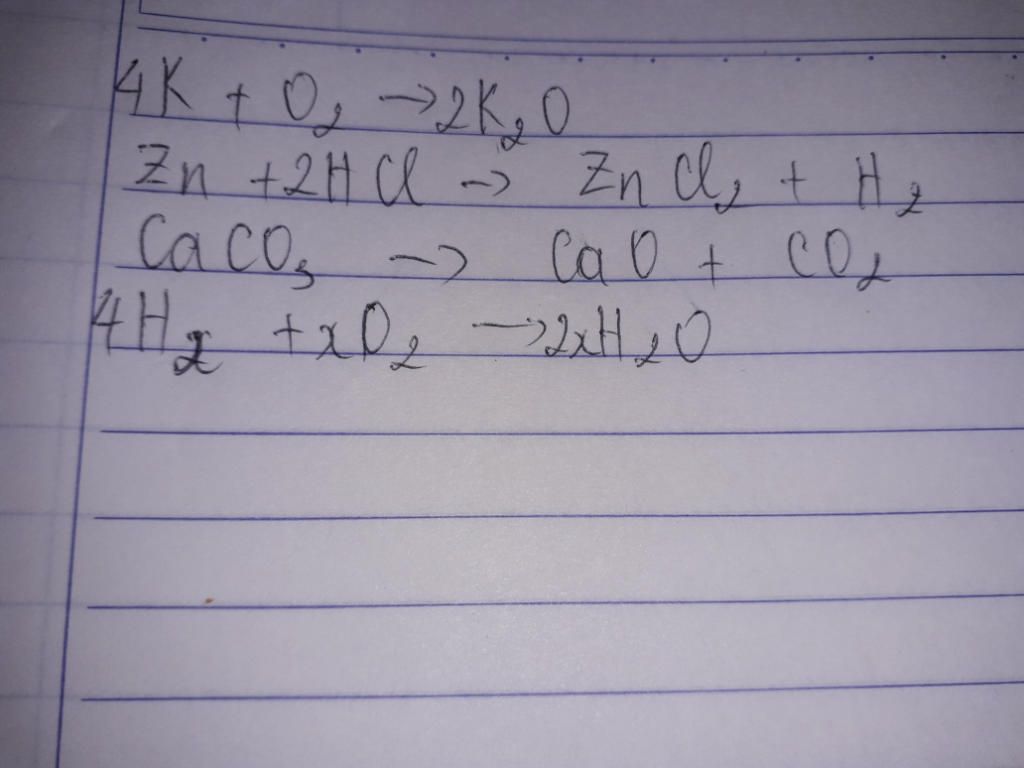 4K + O₂ → 2K₂O
Zn + 2HCl → ZnCl₂ + H₂
CaCO₃ → CaO + CO₂
4H₂ + xO₂ → 2xH₂O